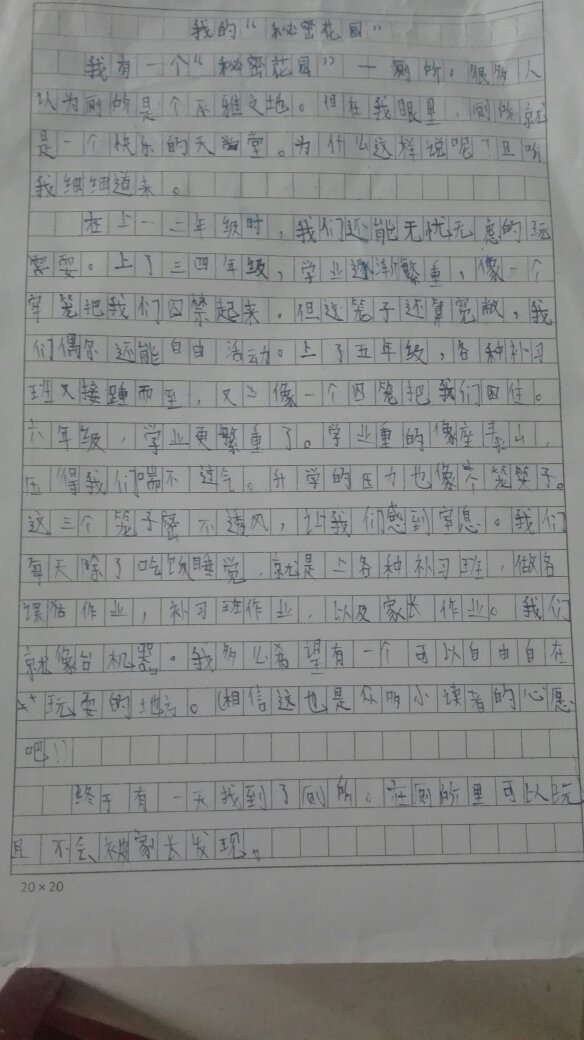 我的“秘密花园”
我有一个“秘密花园”—厕所。很多人
认为厕所是个不雅之地。但在我眼里，厕所就
是一个快乐的天堂。为什么这样说呢？且听
我细细道来。
在上一二年级时，我们还能无忧无虑的玩
耍。上了三四年级，学业逐渐繁重，像一个
牢笼把我们囚禁起来。但这笼子还算宽敞，我
们偶尔还能自由活动。上了五年级，各种补习
班又接踵而至，又像一个囚笼把我们困住。
六年级，学业更繁重了。学业重的像座泰山，
压得我们喘不过气。升学的压力也像个笼子。
这三个笼子密不透风，让我们感到窒息。我们
每天除了吃饭睡觉，就是上各种补习班，做各
课作业，补习班作业，以及家长作业。我们
就像台机器。我多么希望有一个可以自由自在
玩耍的地方。（相信这也是众多小读者的心愿
吧！）
终于有一天我找到了厕所。在厕所里可以玩
且不会被家长发现。
20×20